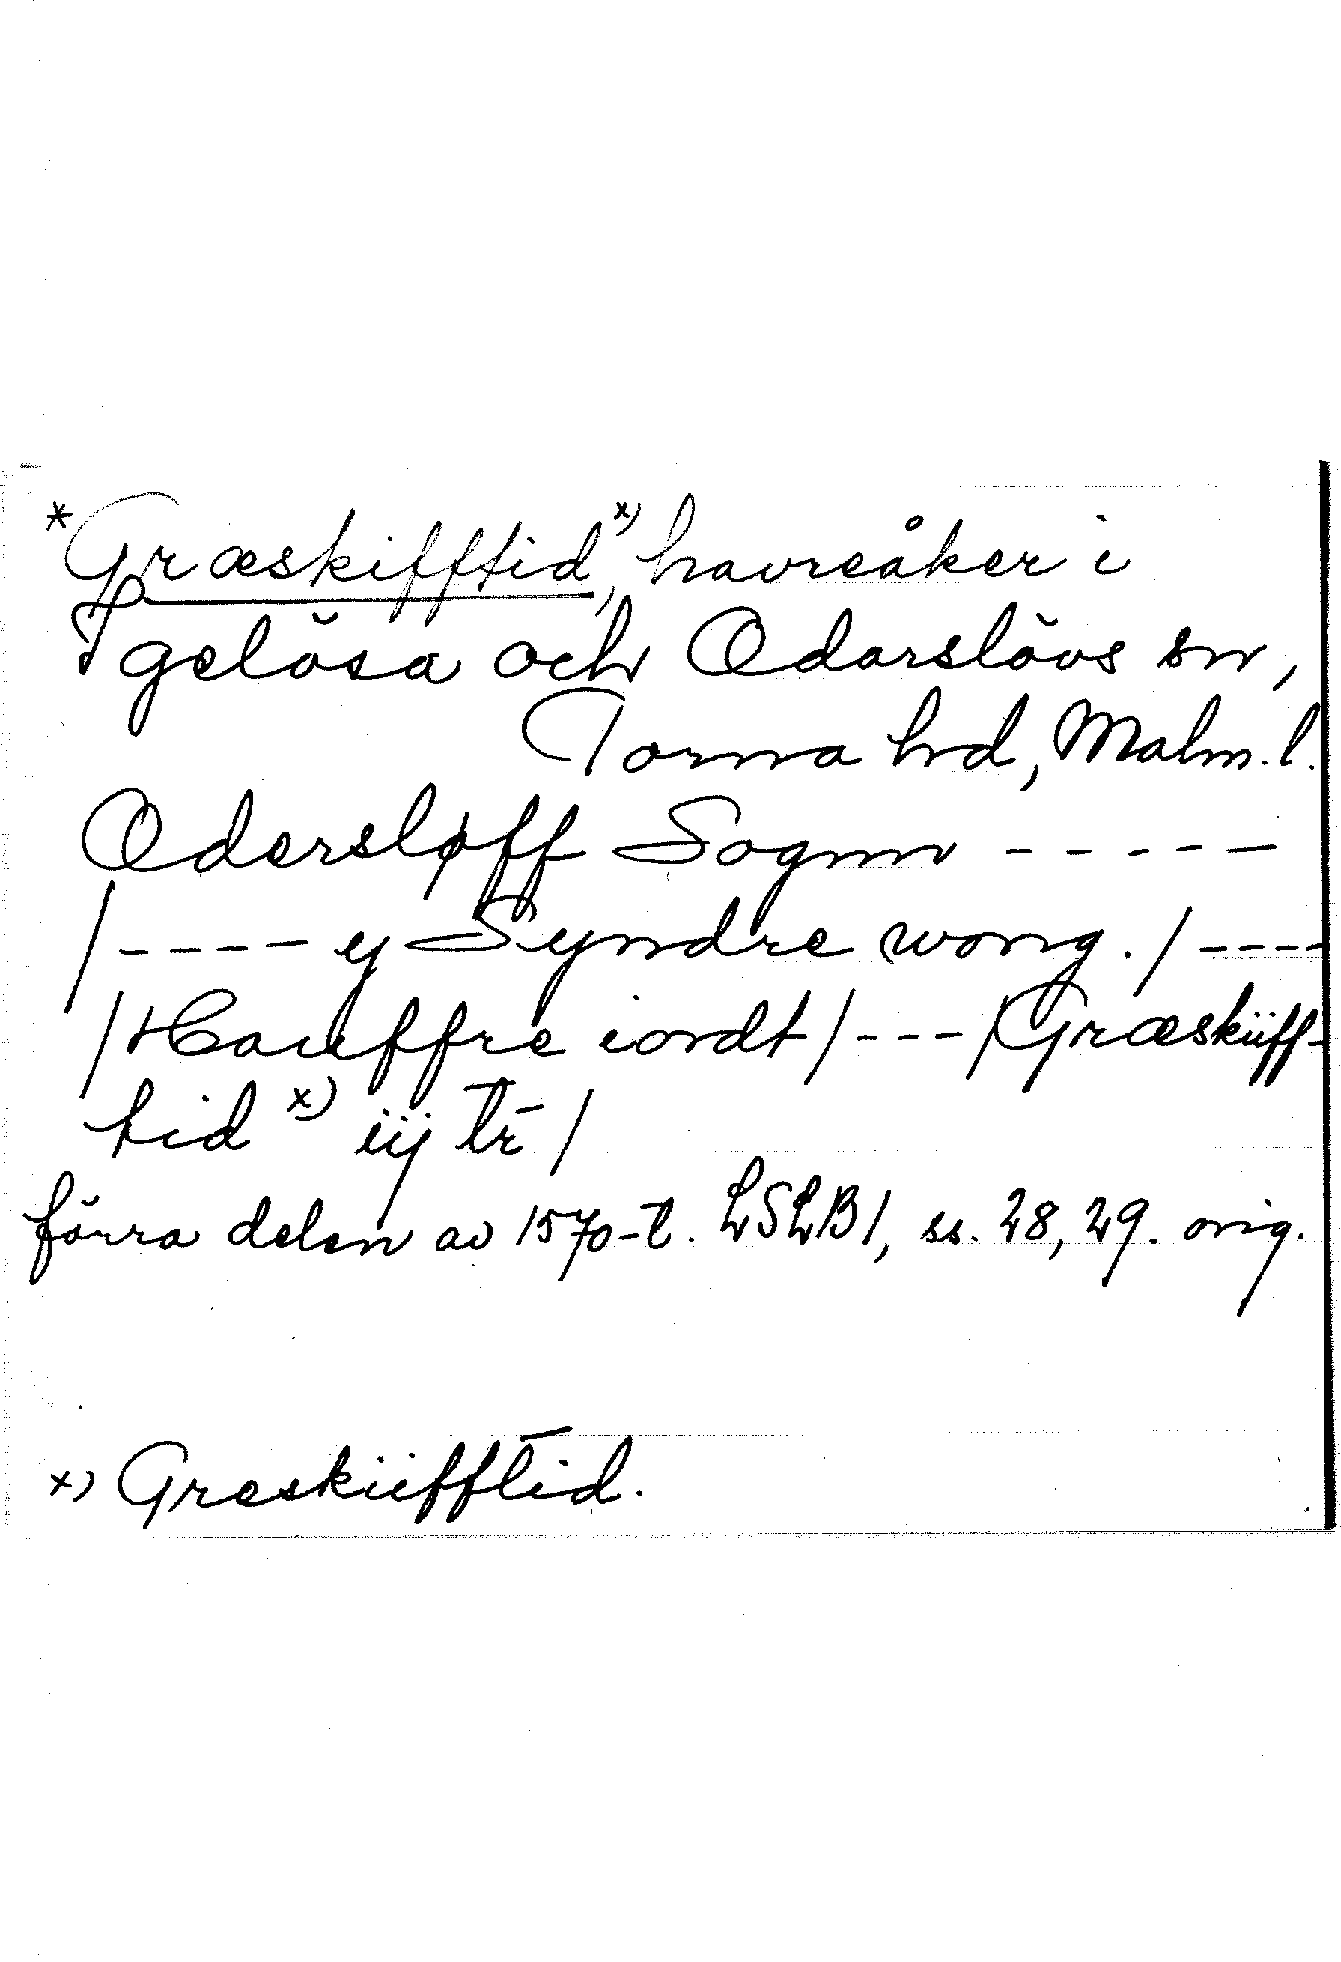 *Græskifftid x), havreåker i
Igelösa och Odarslövs sn,
Torna hd, Malm. l.
Odersløff Sognn - - - - -
/- - - - ej Syndre wong. / - - - -
/Hauffre iordt / - - - /Græskiiff-
tid x) iij tr̄ /
förra delen av 1570-t. LSLB1, ss. 28, 29. orig.
x) Greskiifftid.